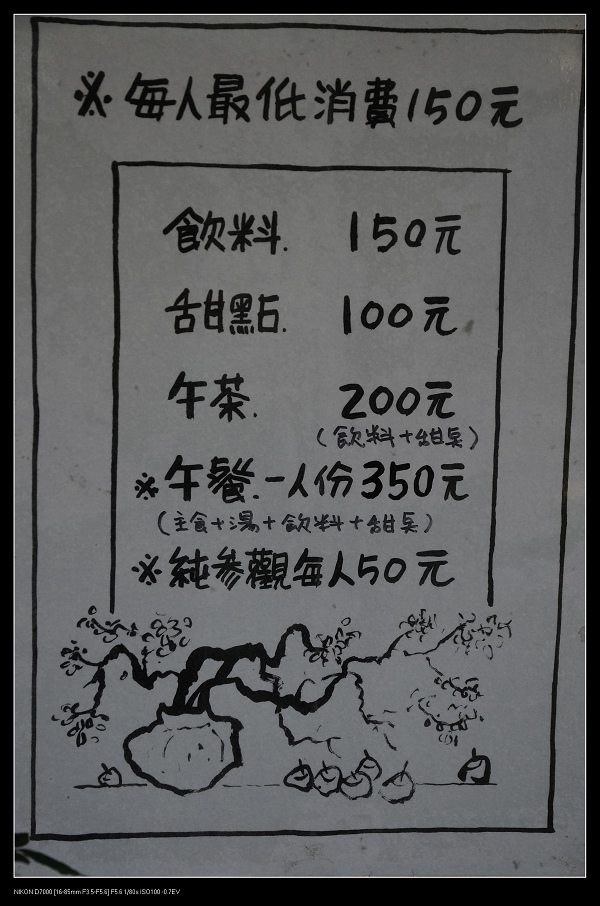 ※每人最低消費150元
飲料. 150元
甜點. 100元
午茶. 200元
(飲料+甜点)
※午餐.一人份350元
(主食+湯+飲料+甜点)
※純参觀每人50元
NIKON D7000 [16-85mm F3.5-F5.6] F5.6 1/80s ISO100 -0.7EV